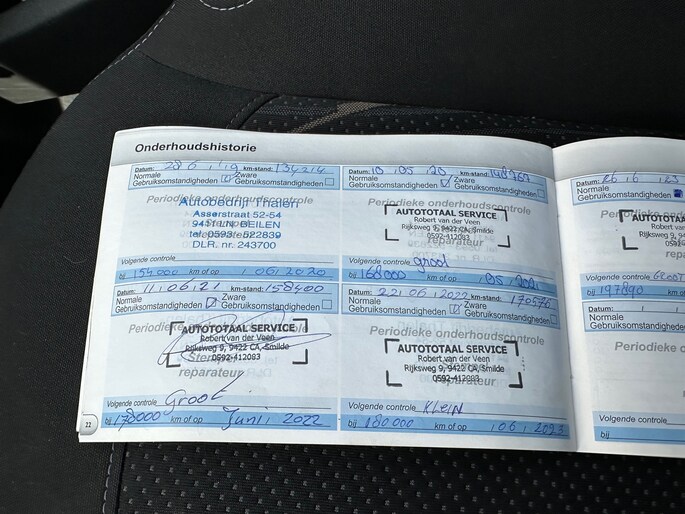 Onderhoudshistorie
Datum: 28 6 19 km-stand: 134214
Normale Gebruiksomstandigheden Zware Gebruiksomstandigheden
Periodieke onderhoudscontrole
Autobedrijf Thalen
Asserstraat 52-54
9411 LN BEILEN
tel. 0593 - 522839
DLR. nr. 243700
Volgende controle
bij 154000 km of op 1 06 2020
Datum: 10 05 20 km-stand:
Normale Gebruiksomstandigheden Zware Gebruiksomstandigheden
Periodieke onderhoudscontrole
AUTOTOTAAL SERVICE
Robert van der Veen
Rijksweg 9, 9422 CA, Smilde
0592-412083
reparateur
Volgende controle groot
bij 168000 km of op 05 2021
Datum: 11 06 21 km-stand: 158400
Normale Gebruiksomstandigheden Zware Gebruiksomstandigheden
Periodieke
AUTOTOTAAL SERVICE
Robert van der Veen
Rijksweg 9, 9422 CA, Smilde
0592-412083
reparateur
Volgende controle Groot
bij 178000 km of op Junii 2022
Datum: 22 06 2022 km-stand: 170576
Normale Gebruiksomstandigheden Zware Gebruiksomstandigheden
Periodieke onderhoudscontrole
AUTOTOTAAL SERVICE
Robert van der Veen
Rijksweg 9, 9422 CA, Smilde
0592-412083
reparateur
Volgende controle KLEIN
bij 180000 km of op 06 2023
22
Datum: 26 6 23
Normale
Gebruiksomstandigheden
Periodieke
AUTOTOT
Robert
Rijksweg 9,
Volgende controle GROOT
bij 197890 km of op
Datum:
Normale
Gebruiksomstandigheden
Periodieke o
S
re
Volgende controle
bij km of op